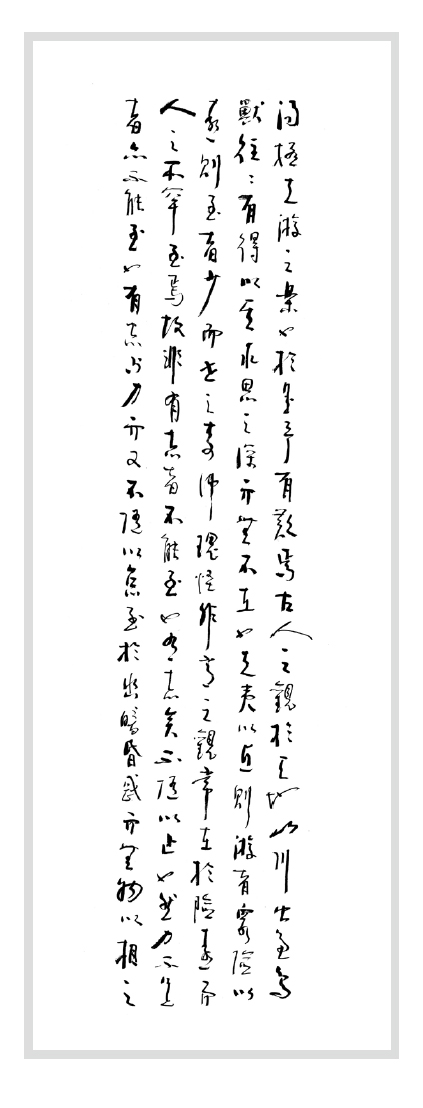 得極夫游之樂也於是予有歎焉古人之觀於天地山川艸魚鳥
獸往往有得以其求思之深而無不在也夫夷以近則游者衆險以
遠則至者少而世之奇偉瑰怪非常之觀常在於險遠而
人之所罕至焉故非有志者不能至也有志矣不隨以止也然力不足
者亦不能至也有志與力而又不隨以怠至於幽暗昏惑而無物以相之